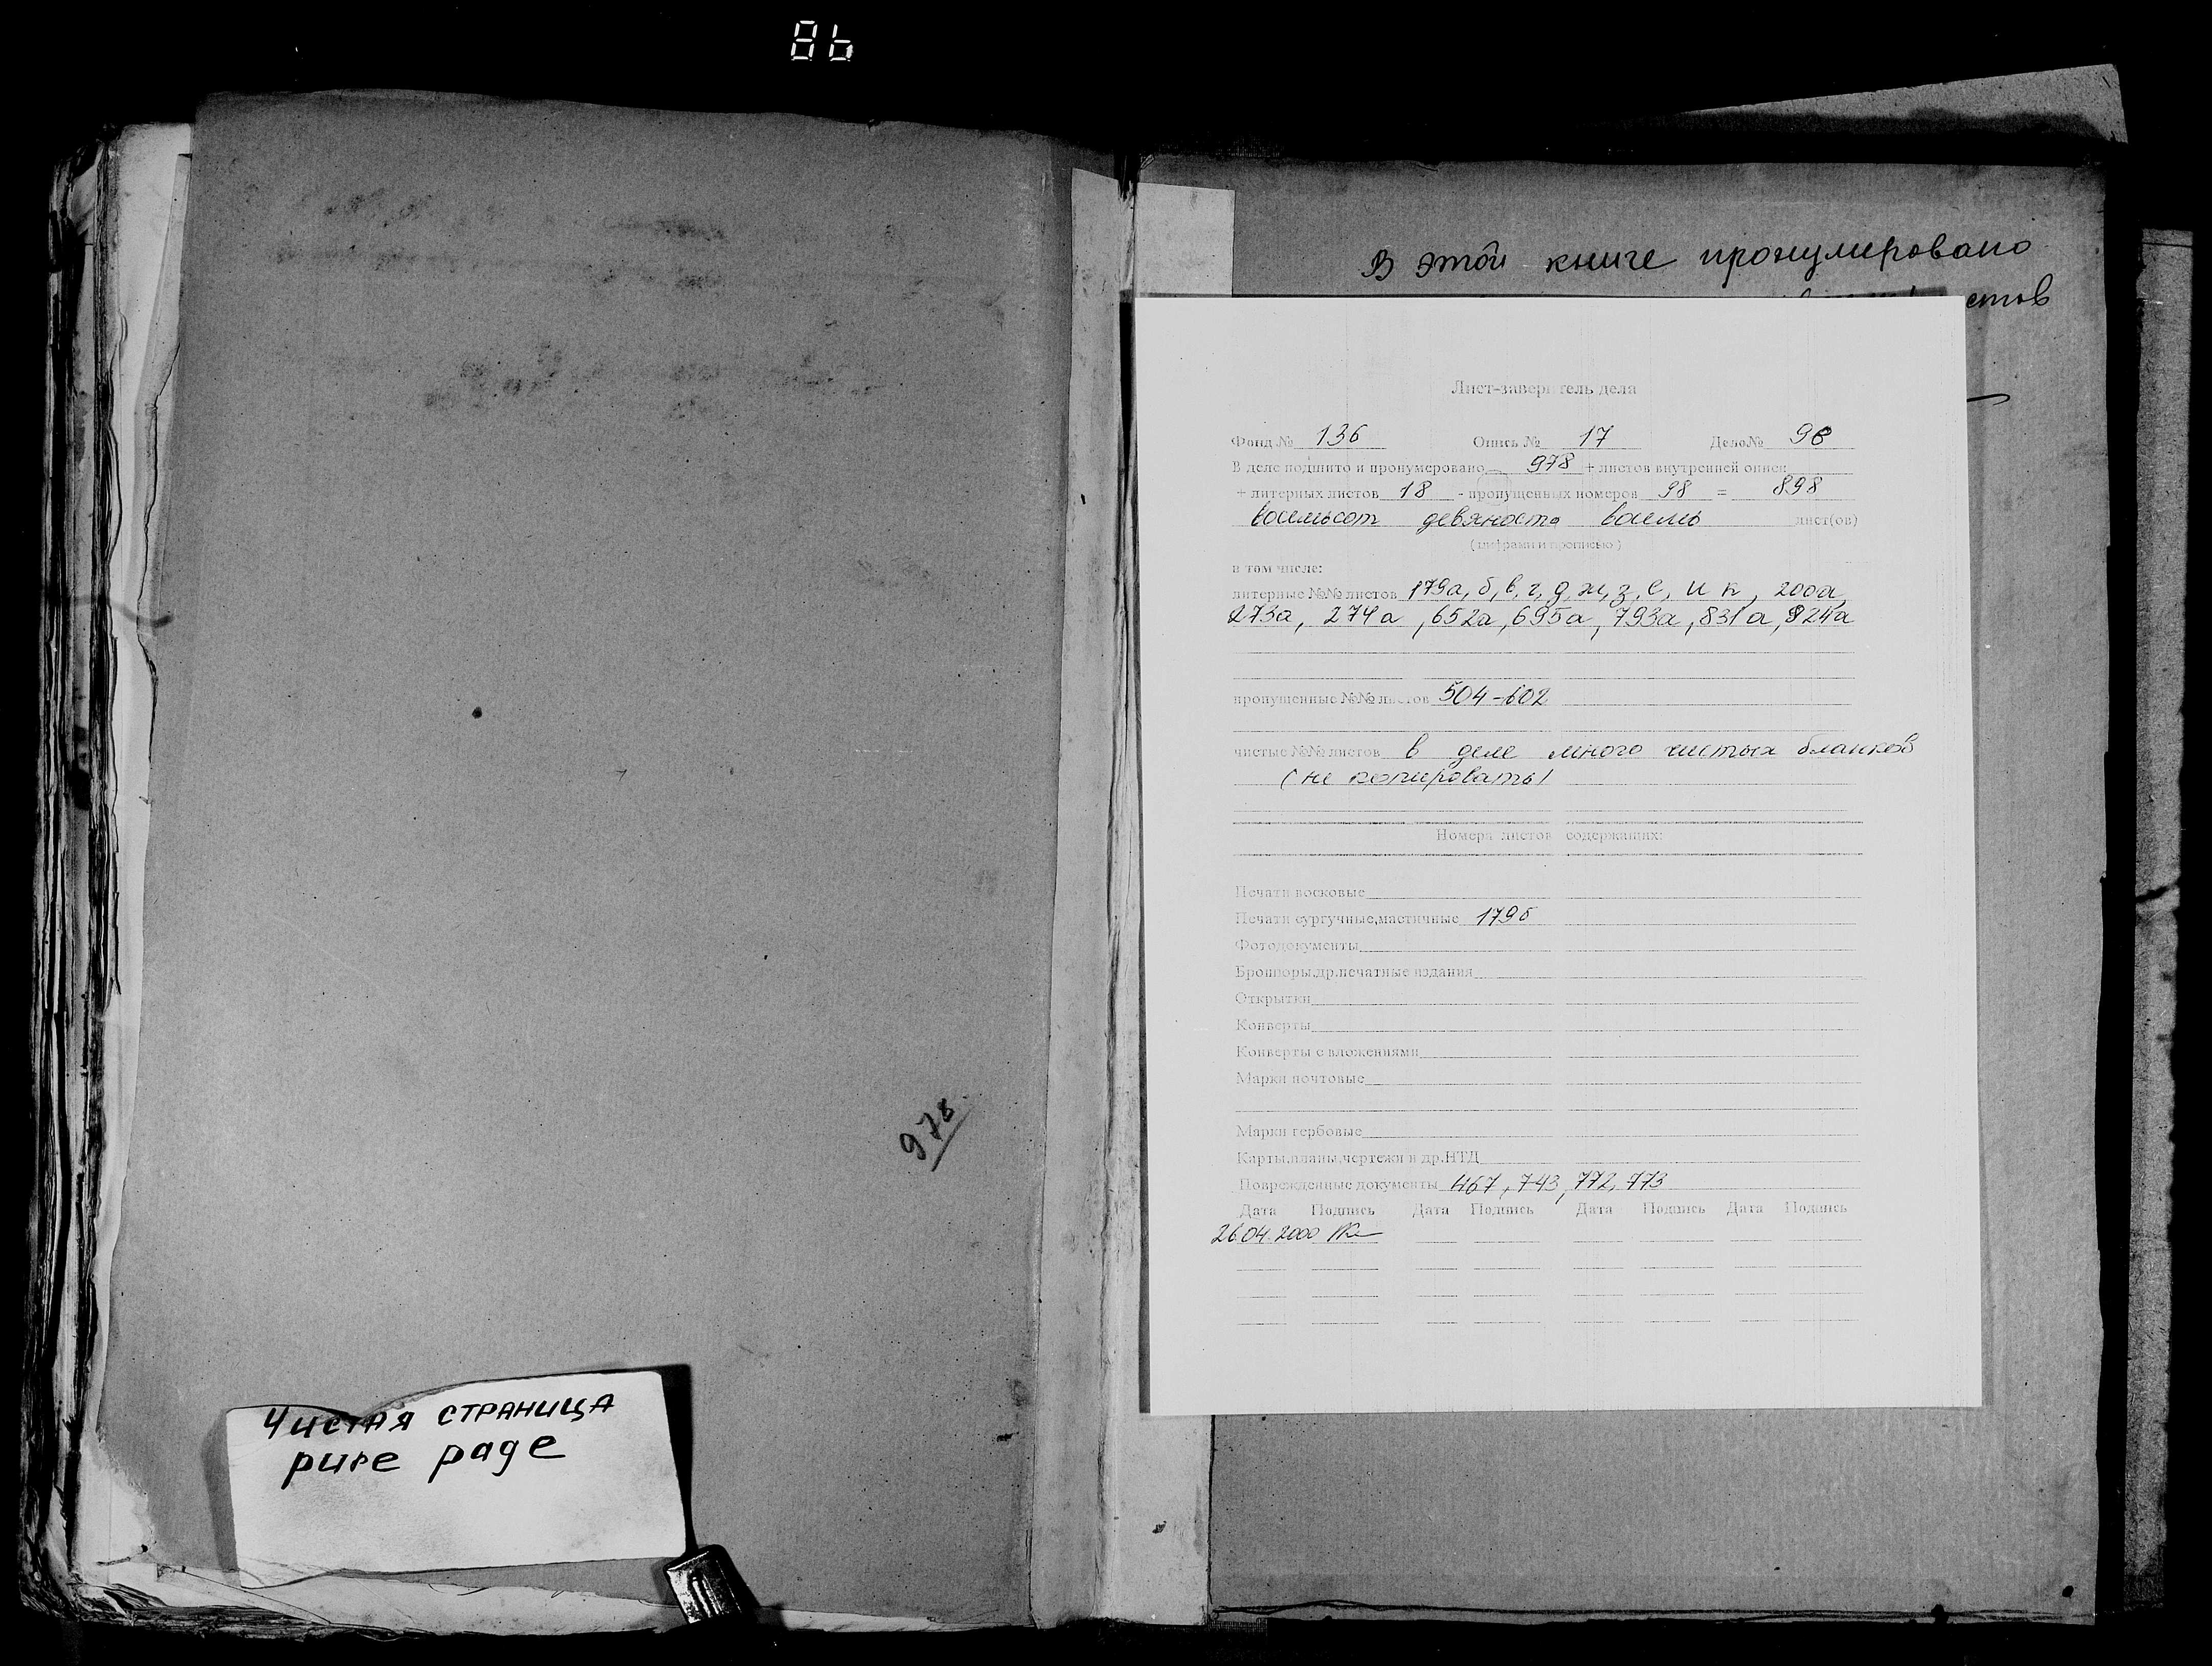 86
978
Чистая страница
pure page
В этой книге пронумеровано
стов
Лист-заверитель дела
Фонд № 136 Опись № 17 Дело№ 98
В деле подшито и пронумеровано 978 + листов внутренней описи
+ литерных листов 18 - пропущенных номеров 98 = 898
восемьсот девяносто восемь лист(ов)
(цифрами и прописью)
в том числе:
литерные №№ листов 179а, б, в, г, д, ж, з, е, и к, 200а,
273а, 274а, 652а, 695а, 793а, 831а, 824а
пропущенные №№ листов 504-602
чистые №№ листов в деле много чистых бланков
(не копировать)
Номера листов содержащих:
Печати восковые
Печати сургучные,мастичные 179б
Фотодокументы
Брошюры,др.печатные издания
Открытки
Конверты
Конверты с вложениями
Марки почтовые
Марки гербовые
Карты,планы,чертежи и др.НТД
Поврежденные документы 467, 743, 772, 773
Дата Подпись Дата Подпись Дата Подпись Дата Подпись
26.04.2000